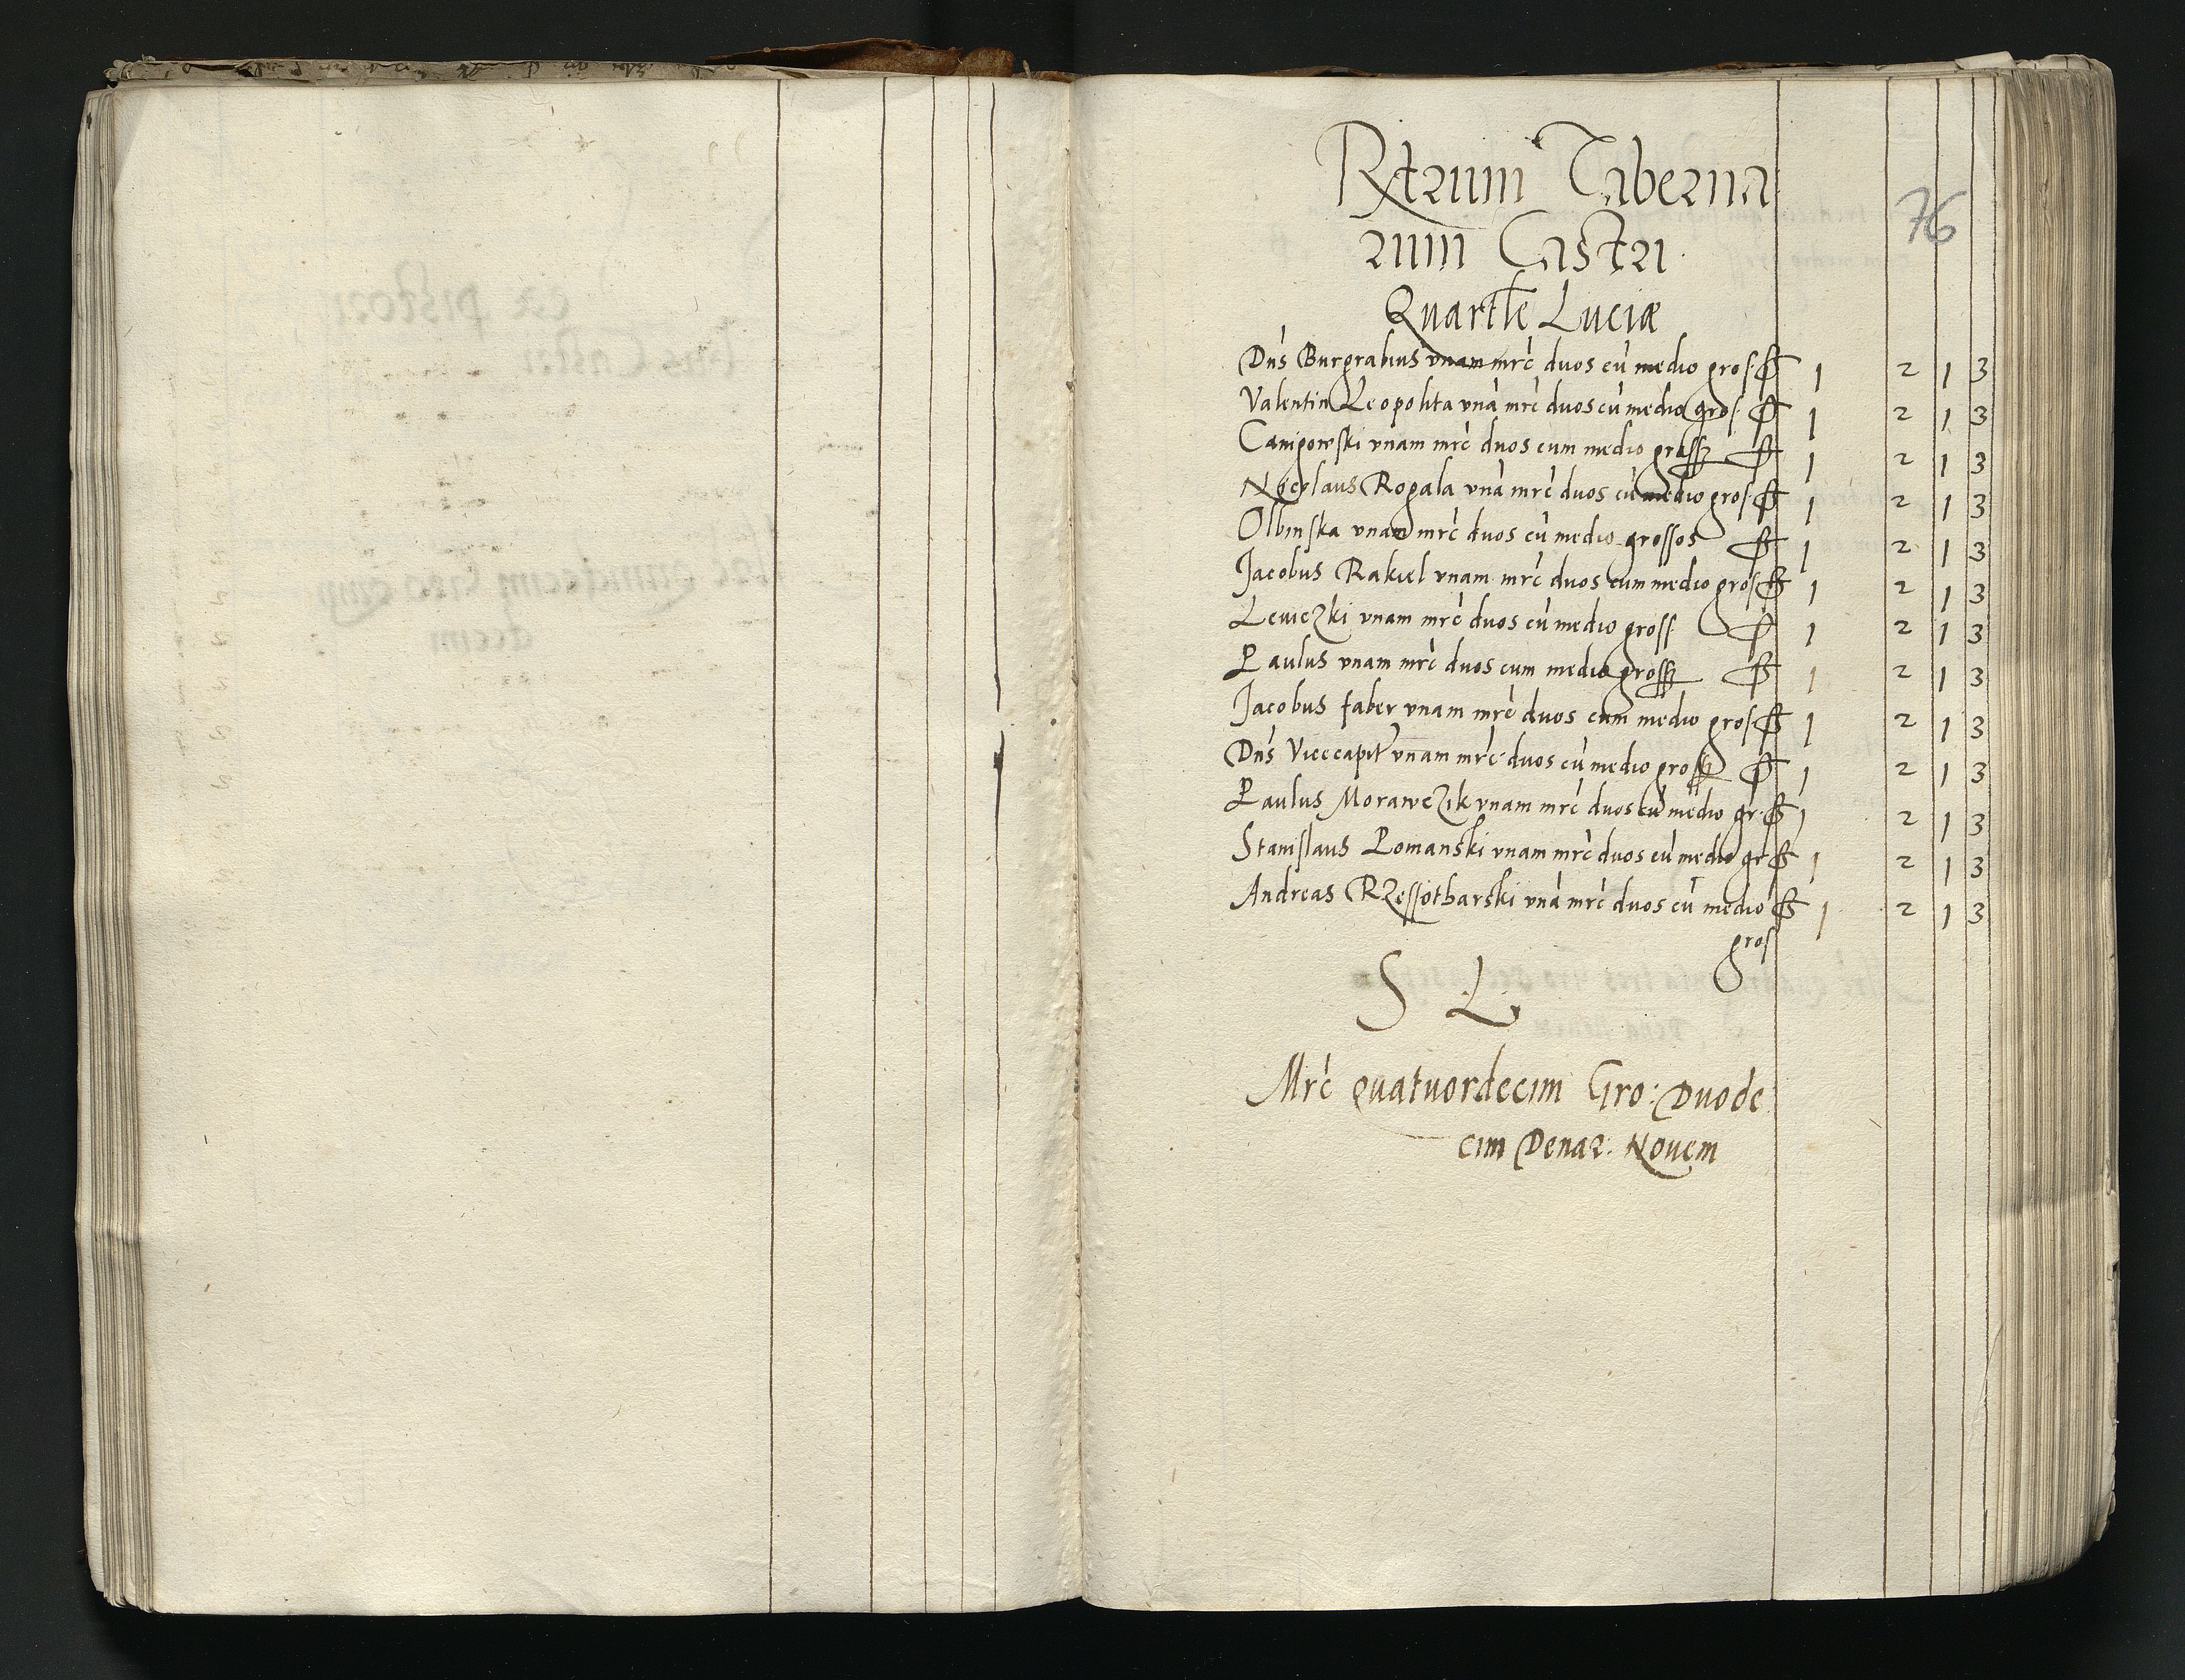 Rtrum Taberna
rum Castri
76
Quartle Luciæ
Dns Burgrabius vnam mrc duos cu medio gros ß 1 2 1 3
Valentin Leopolita vna mrc duos cu medio gros ß 1 2 1 3
vnam mrc duos cum medio gross ß 1 2 1 3
Nicolaus Rogala vna mrc duos cu medio gros ß 1 2 1 3
Olbinska vnam mrc duos cu medio grossos ß 1 2 1 3
Jacobus Rakiel vnam mrc duos cum medio gros ß 1 2 1 3
Leviczki vnam mrc duos cu medio gross ß 1 2 1 3
Paulus vnam mrc duos cum medio gross ß 1 2 1 3
Jacobus faber vnam mrc duos cum medio gros ß 1 2 1 3
Dns Vicecapit vnam mrc duos cu medio gross ß 1 2 1 3
Paulus Morawczik vnam mrc duos cu medio gr. ß 1 2 1 3
Stanislaus Pomanski vnam mrc duos cu medio gr ß 1 2 1 3
Andreas Rzessotharski vna mrc duos cu medio ß 1 2 1 3
gros
S L
Mrc quatuordecim Gro: Duode
cim Denar: Nouem